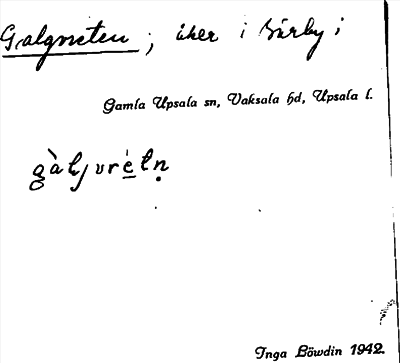 Galgvreten ; åker i Bärby ;
Gamla Upsala sn, Vaksala hd, Upsala l.
gàljvrétṇ
Inga Löwdin 1942.